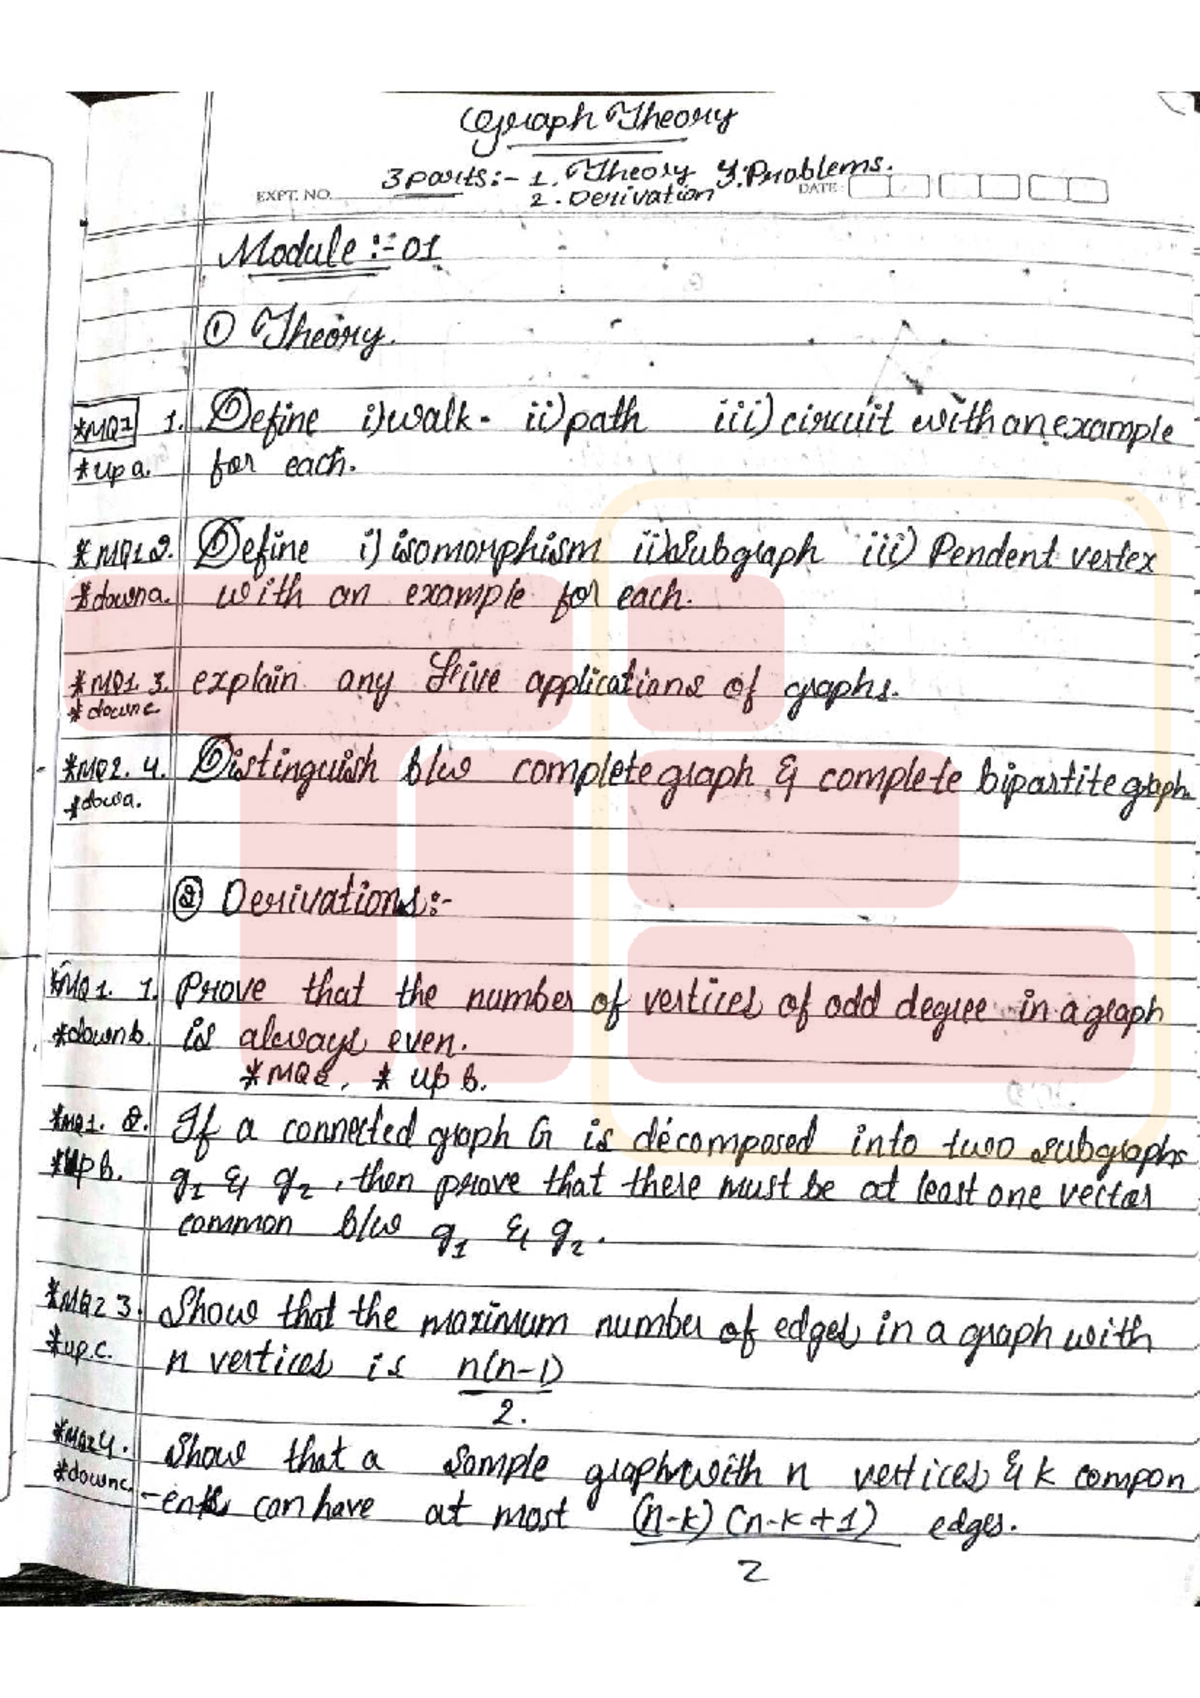 Graph Theory
3 parts:- 1. Theory 3. Problems.
EXPT. NO. 2. Derivation DATE:
Module :- 01
① Theory.
*MQ1 1. Define i) walk - ii) path iii) circuit with an example
*up a. for each.
*MQ1 2. Define i) isomorphism ii) Subgraph iii) Pendent vertex
*down a. with an example for each.
*MQ1 3. explain any five applications of graphs.
*down c.
*MQ2. 4. Distinguish b/w complete graph & complete bipartite graph.
*down a.
② Derivations:-
*MQ1. 1. Prove that the number of vertices of odd degree in a graph
*down b. is always even.
*MQ2, * up b.
*MQ1. 2. If a connected graph G is decomposed into two subgraphs
*up b. g1 & g2, then prove that there must be at least one vectar
common b/w g1 & g2.
*MQ2 3. Show that the maximum number of edges in a graph with
*up.c. n vertices is n(n-1)
2.
*MQ2 4. Show that a Sample graph with n vertices & k compon
*down c. -ents can have at most (n-k) (n-k+1) edges.
2